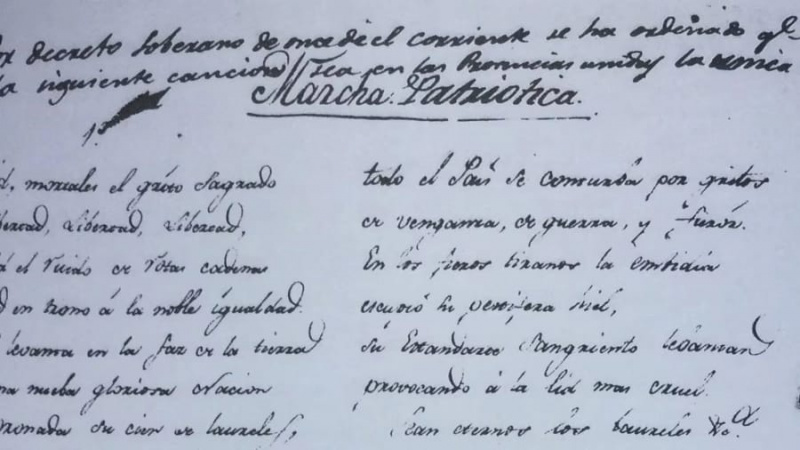 decreto soberano de once del corriente se ha ordenado qe
la siguiente cancion sea en las Provincias unidas la unica
Marcha Patriotica.
1ª
mortales el grito sagrado
Libertad, Libertad,
el ruido de rotas cadenas
en trono á la noble igualdad.
levanta en la faz de la tierra
nueba gloriosa Nacion
su cien de laureles,
todo el Pais se conturba por gritos
de venganza, de guerra, y furor.
En los fieros tiranos la embidia
escupió su pestifera hiel,
su Estandarte sangriento levantan
provocando á la lid mas cruel.
Sean eternos los laureles &.a